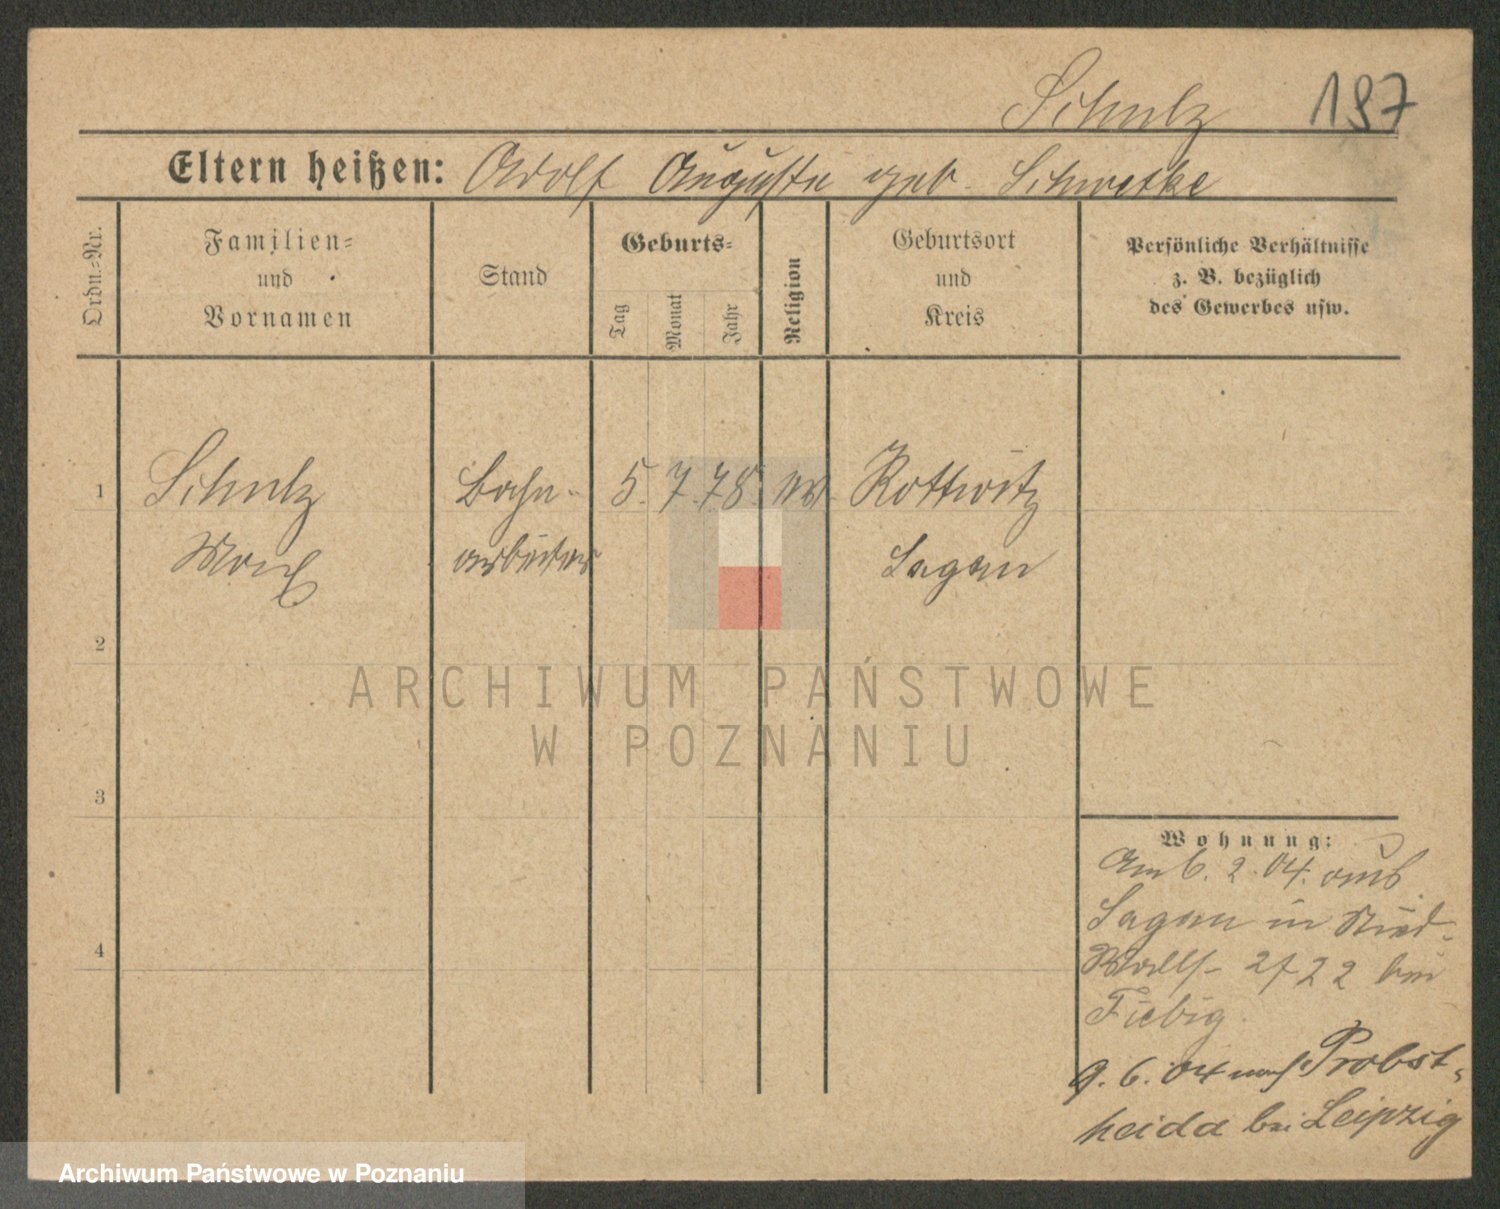 Schulz 197
Eltern heißen: Adolf Auguste geb. Schwetke
Ordn.-Nr.
Familien-
und
Vornamen
Stand
Geburts-
Tag
Monat
Jahr
Religion
Geburtsort
und
Kreis
Persönliche Verhältnisse
z. B. bezüglich
des Gewerbes usw.
1 Schulz Bahn- 5. 7. 78. ev. Rottwitz
Max arbeiter Sagan
2
3
4
Wohnung:
Am 6. 2. 04. aus
Sagan in Nied-
Wallst- 2722 bei
Fiebig.
9. 6. 04 nach Probst-
heida bei Leipzig
ARCHIWUM PAŃSTWOWE
W POZNANIU
Archiwum Państwowe w Poznaniu